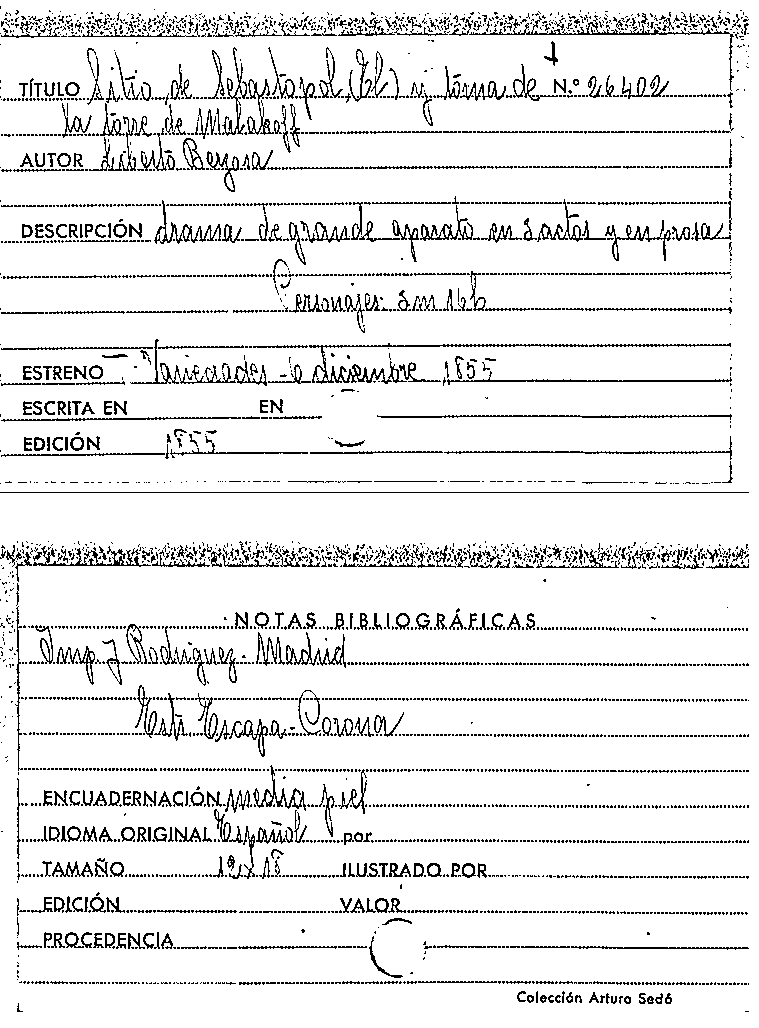 TÍTULO Sitio de Sebastopol (El) y toma de N.º 26402
la torre de Malakoff
AUTOR Liberto Berzosa
DESCRIPCIÓN drama de grande aparato en 3 actos y en prosa
Personajes: 3m 16h
ESTRENO Variedades - 6 diciembre 1855
ESCRITA EN EN
EDICIÓN 1855
NOTAS BIBLIOGRÁFICAS
Imp. J Rodriguez - Madrid
Estr Escapa - Corona
ENCUADERNACIÓN media piel
IDIOMA ORIGINAL Español por
TAMAÑO 12 x 18 ILUSTRADO POR
EDICIÓN VALOR
PROCEDENCIA
Colección Arturo Sedó